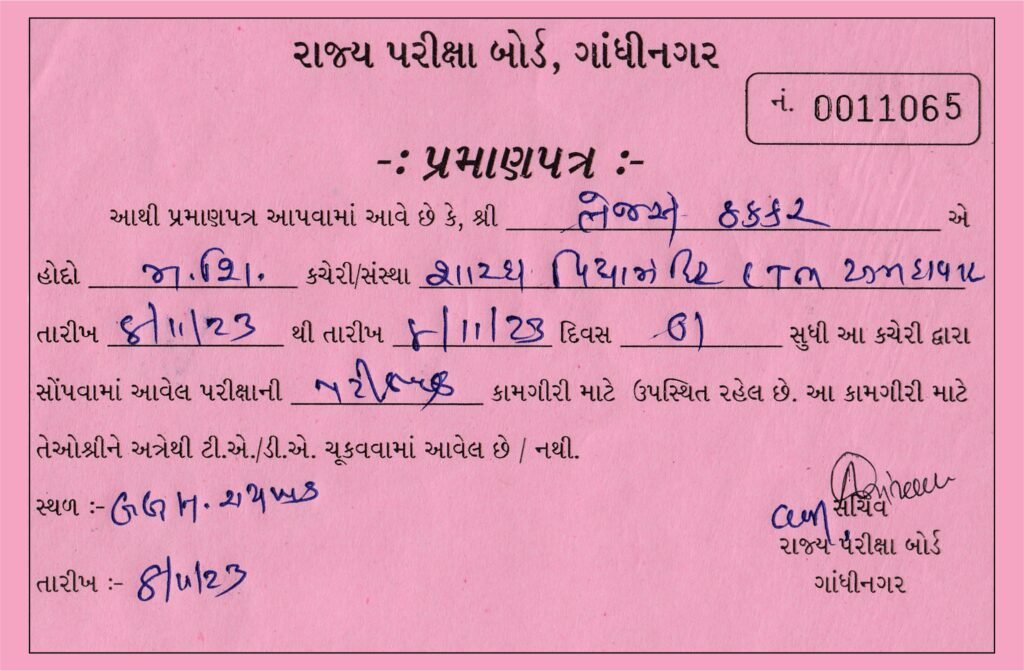 રાજ્ય પરીક્ષા બોર્ડ, ગાંધીનગર
નં. 0011065
-: પ્રમાણપત્ર :-
આથી પ્રમાણપત્ર આપવામાં આવે છે કે, શ્રી તેજસ ઠક્કર એ
હોદ્દો મ.શિ. કચેરી/સંસ્થા શારદા વિદ્યામંદિર CTM અમદાવાદ
તારીખ ૪/11/23 થી તારીખ ૪/11/23 દિવસ ૦૧ સુધી આ કચેરી દ્વારા
સોંપવામાં આવેલ પરીક્ષાની કામગીરી માટે ઉપસ્થિત રહેલ છે. આ કામગીરી માટે
તેઓશ્રીને અત્રેથી ટી.એ./ડી.એ. ચૂકવવામાં આવેલ છે / નથી.
સ્થળ :-
સચિવ
રાજ્ય પરીક્ષા બોર્ડ
તારીખ :- ૪/11/23
ગાંધીનગર